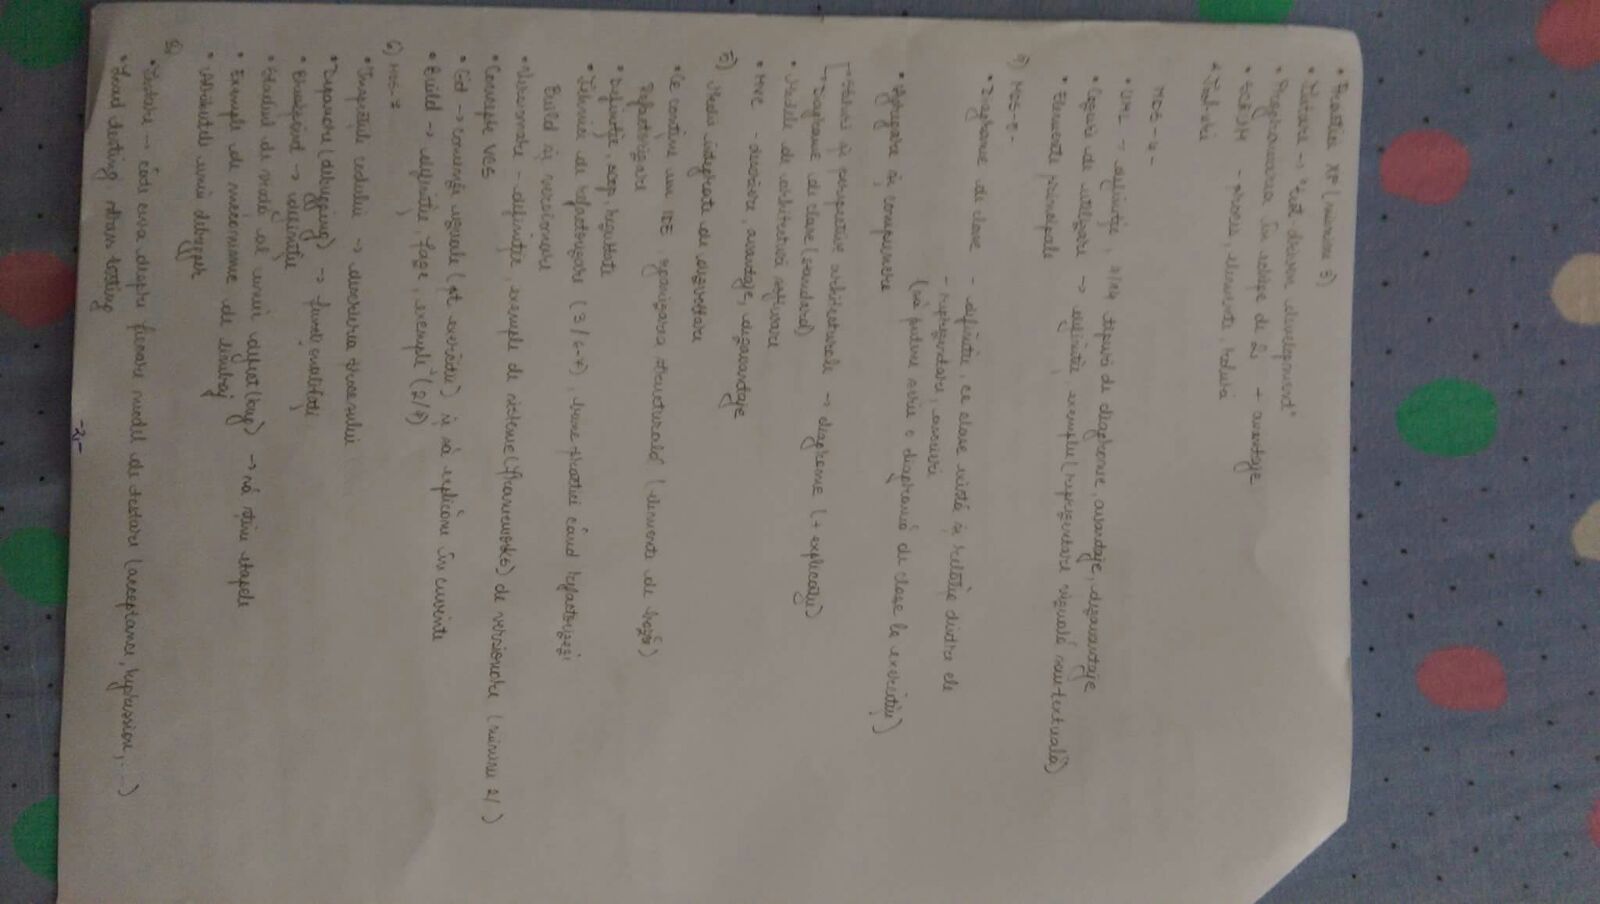 • Practici XP (minim 3)
• Testare → "test driven development"
• Programarea în echipe de 2; + avantaje
• SCRUM - proces, elemente, roluri
MDS-4-
• UML → definiție, tipuri de diagrame, avantaje, dezavantaje
• Cazuri de utilizare → definiție, exemplu (reprezentare vizuală sau textuală)
• Elemente principale
4) MDS-5-
• Diagrame de clase - definiție, ce clase există și relație dintre ele
- reprezentare, asocieri
(să putem scrie o diagramă de clase la exercițiu)
• Agregare și compunere
și perspective arhitecturale → diagrame (+ explicații)
→ Diagrame de clase (standard)
• Modele de arhitecturi software
• MVC - descriere, avantaje, dezavantaje
5) Medii integrate de dezvoltare
• Ce conține un IDE, organizarea structurală (elemente de bază)
Refactorizare
• Definiție, scop, rezultate
• Tehnici de refactorizare (3 / 6-7), bune practici când refactorizezi
Build și versionare
• Versionare - definiție, exemple de sisteme (frameworks) de versionare (minim 2)
• Concepte VCS
• Git → comenzi uzuale (pt exercițiu) și să explicăm în cuvinte
• Build → definiție, faze, exemple (2/7)
6) MDS-7
• Inspecțiile codului → descrierea procesului
• Depanare (debugging) → funcționalități
• Breakpoint → definiție
• Modul de viață al unui defect (bug) → să știm etapele
• Exemple de mecanisme de
• Atributele unui debugger
• Testare → câte ceva despre fiecare nivel de testare (acceptance, regression, ...)
• Load testing, stress testing
-2-